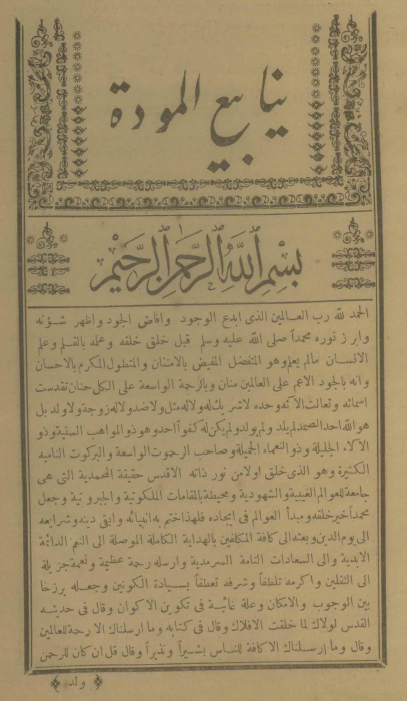 ينابيع المودة
بسم الله الرحمن الرحيم
الحمد لله رب العالمين الذى ابدع الوجود وافاض الجود واظهر شؤنه
وابرز نوره محمدا صلى الله عليه وسلم قبل خلق خلقه وعلمه بالقلم وعلم
الانسان مالم يعلم وهو المتفضل المفيض بالامتنان والمتطول المكرم بالاحسان
وانه بالجود الاعم على العالمين منان وبالرحمة الواسعة على الكل حنان تقدست
اسمائه وتعالت الآئه وحده لا شريك له ولا له مثل ولا ضد ولا له زوجة ولا ولد بل
هو الله احد الصمد لم يلد ولم يولد ولم يكن له كفوا احد وهو ذو المواهب السنية وذو
الآلاء الجليلة وذو النعماء الجميلة وصاحب الرحموت الواسعة والبركوت النامية
الكثيرة وهو الذى خلق اولا من نور ذاته الاقدس حقيقة المحمدية التى هى
جامعة للعوالم الغيبية والشهودية ومحيطة بالمقامات الملكوتية والجبروتية وجعل
محمدا خير خلقه ومبدأ العوالم فى ايجاده فلهذا ختم به انبيائه وابقى دينه وشرايعه
الى يوم الدين وبعثه الى كافة المكلفين بالهداية الكاملة الموصلة الى النعم الدائمة
الابدية والى السعادات التامة السرمدية وارسله رحمة عظيمة ونعمة جزيلة
الى الثقلين واكرمه تلطفا وشرفه تعطفا بسيادة الكونين وجعله برزخا
بين الوجوب والامكان وعلة غائية فى تكوين الاكوان وقال فى حديثه
القدس لولاك لما خلقت الافلاك وقال فى كتابه وما ارسلناك الا رحمة للعالمين
وقال وما ارسلناك الا كافة للناس بشيرا ونذيرا وقال قل ان كان للرحمن
ولد